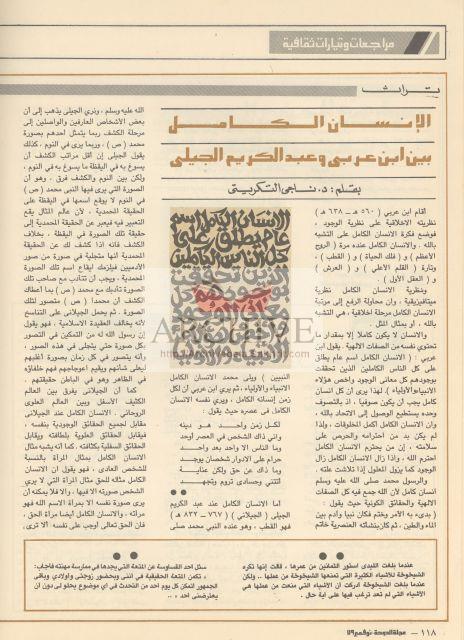 مراجعات وتيارات ثقافية
تراث
الإنسان الكامل
بين ابن عربي وعبد الكريم الجيلي
بقلم : د. ناجى التكريتى
أقام ابن عربي ( ٥٦٠ هـ ــ ٦٣٨ هـ )
نظريته الاخلاقية على نظرية الوجود ،
فوضع فكرة الانسان الكامل على التشبه
بالله . والانسان الكامل عنده مرة ( الروح
الأعظم ) و ( فلك الحياة ) و ( القطب ) ،
وتارة ( القلم الأعلى ) و ( العرش )
و ( العقل الأول ) .
ونظرية الانسان الكامل نظرية
ميتافيزيقية ، وان محاولة الرفع إلى مرتبة
الانسان الكامل مرحلة اخلاقية ، هي التشبه
بالله ، أو بمثال المثل .
والانسان لا يكون كاملا إلا بمقدار ما
تحتوي نفسه من الصفات الالهية . يقول ابن
عربي : ( الانسان الكامل اسم عام يطلق
على كل الناس الكاملين الذين تحققت
بوجودهم كل معاني الوجود واخص هؤلاء
الانبياء والأولياء ) . لهذا يرى أن كل انسان
كامل يجب أن يكون صوفيا ، اذ بالتصوف
وحده يستطيع الوصول إلى الاتحاد بالله .
وان الانسان الكامل أكمل المخلوقات ، ولذا
لم يكن بد من احترامه والحرص على
سلامته ، إن من يحترم الانسان الكامل
احترم الله ، واذا زال الانسان الكامل زال
الوجود كما يزول المعلول إذا تلاشت علته .
والرسول محمد صلى الله عليه وسلم
انسان كامل لأن الله جمع فيه كل الصفات
الالهية والحقائق الكونية حيث يقول :
( بدىء به الأمر وختم فكان نبيا وآدم بين
الماء والطين ، ثم كان بنشأته العنصرية خاتم
النبيين ) ويلى محمد الانسان الكامل
الانبياء والأولياء ، ثم يرى ابن عربي أن لكل
زمن إنسانه الكامل ، ويرى نفسه الانسان
الكامل في عصره حيث يقول :
لكل زمن واحد هو دينه
واني ذاك الشخص في العصر أوحد
وما الناس الا واحد بعد واحد
حرام على الادوار شخصان يوجد
وما ذاك عن حق ولكن عناية
أما الانسان الكامل عند عبد الكريم
الجيلي ( الجيلاني ) ( ٧٦٧ ــ ٨٣٢ هـ )
فهو القطب ، وهو عنده النبي محمد صلى
الله عليه وسلم ، ونرى الجيلي يذهب إلى أن
بعض الأشخاص العارفين والواصلين إلى
مرحلة الكشف ربما يتمثل أحدهم بصورة
محمد ( ص ) ، وربما يرى في النوم . كذلك
يقول الجيلي إن أقل مراتب الكشف أن
يسوغ به في اليقظة ما يسوغ به في النوم .
ولكن بين النوم والكشف فرق ، وهو أن
الصورة التي يرى فيها النبي محمد ( ص )
في النوم لا يوقع اسمها في اليقظة على
الحقيقة المحمدية ، لأن عالم المثال يقع
التعبير فيه فيعبر عن الحقيقة المحمدية إلى
حقيقة تلك الصورة في اليقظة ، بخلاف
الكشف فانه اذا كشف لك عن الحقيقة
المحمدية انها متجلية في صورة من صور
الآدميين فيلزمك ايقاع اسم تلك الصورة
المحمدية ، ويجب أن تتأدب مع صاحب تلك
الصورة تأدبك مع محمد ( ص ) بما أعطاك
الكشف أن محمدا ( ص ) متصور لتلك
الصورة . ثم يحمل الجيلي على التناسخ
لأنه يخالف العقيدة الاسلامية ، فهو يقول
إن رسول الله له من التمكين في التصور
بكل صورة حتى يتجلى في هذه الصور .
وأنه يتصور في كل زمان بصورة أغلبهم
ليعلى شأنهم ويقيم اعوجاجهم فهم خلفاؤه
في الظاهر وهو في الباطن حقيقتهم .
كما أن الجيلاني يفرق بين العالم
الكثيف الاسفل وبين العالم العلوي
الروحاني . الانسان الكامل عند الجيلاني
مقابل لجميع الحقائق الوجودية بنفسه ،
فيقابل الحقائق العلوية بلطافته ويقابل
الحقائق السفلية بكثافته . كما أنه يشبه مثال
الانسان الكامل بمثال المرآة بالنسبة
للشخص العادي ، فهو يقول ان الانسان
الكامل مثاله للحق مثال المرآة التي لا يرى
الشخص صورته الا فيها ، والا فلا يمكنه أن
يرى صورة نفسه الا بمرآة الاسم الله فهو
مرآته . والانسان الكامل أيضا مرآة الحق ،
فان الحق تعالى أوجب على نفسه ألا ترى،
● ●
عندما بلغت الليدى استور الثمانين من عمرها ، قالت إنها تكره
الشيخوخة للأشياء الكثيرة التي تمنعها الشيخوخة من عملها .. ولكن
عندما بلغت الشيخوخة أدركت أن الأشياء التي منعت من عملها هي
الأشياء التي لم تعد ترغب فيها على أية حال .
● ●
سئل أحد القساوسة عن المتعة التي يجدها في ممارسة مهنته فأجاب:
« تكمن المتعة الحقيقية في أنني وبحضور زوجتي وأولادي وباقي
الجمهور أتمكن كل يوم أحد من التحدث في أي موضوع يحلو لي دون أن
يعترضني أحد » .
١١٨ ــ مجلة الدوحة ــ نوفمبر ٧٩
ARCHIVE